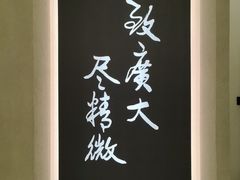 致廣大
尽精微